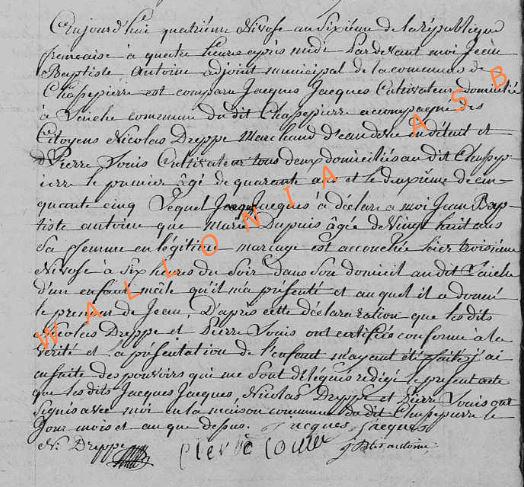 Aujourd'hui quatrième Nivose an sixième de la république
francaise à quatre heures après midi Pardevant moi Jean
Baptiste Antoine adjoint municipal de la commune de
Chassepierre est comparu Jacques Jacques Cultivateur domicilié
à Laiche commune du dit Chassepierre accompagné des
Citoyens Nicolas Dreppe Marchand d'eau de vie en détail et
Pierre Louis Cultivateur tous deux domiciliés au dit Chassep
ierre le premier âgé de quarante ans et le deuxième de cin
quante cinq Lequel Jacques à déclaré a moi Jean Bap
tiste antoine que Marie Dupuis âgée de Vingt huit ans
Sa femme en légitime mariage est accouchée hier troisième
Nivose à Six heures du Soir dans Son domicil au dit Laiche
d'un enfant mâle qu'il m'a présenté et auquel il a donné
le prenom de Jean, D'après cette déclaration que les dits
Nicolas Dreppe et Pierre Louis ont certifiés conforme a la
verité et la présentation de l'enfant m'ayant été faite j'ai
en suite des pouvoirs qui me Sont délégués redigé le present acte
que les dits Jacques Jacques, Nicolas Dreppe et Pierre Louis ont
Signés avec moi en la maison commune du dit Chassepierre le
Jour mois et an que dessus. Jacques Jacques
Ni Dreppe Pierre Louis J Btis antoine
WALLONIA ASB